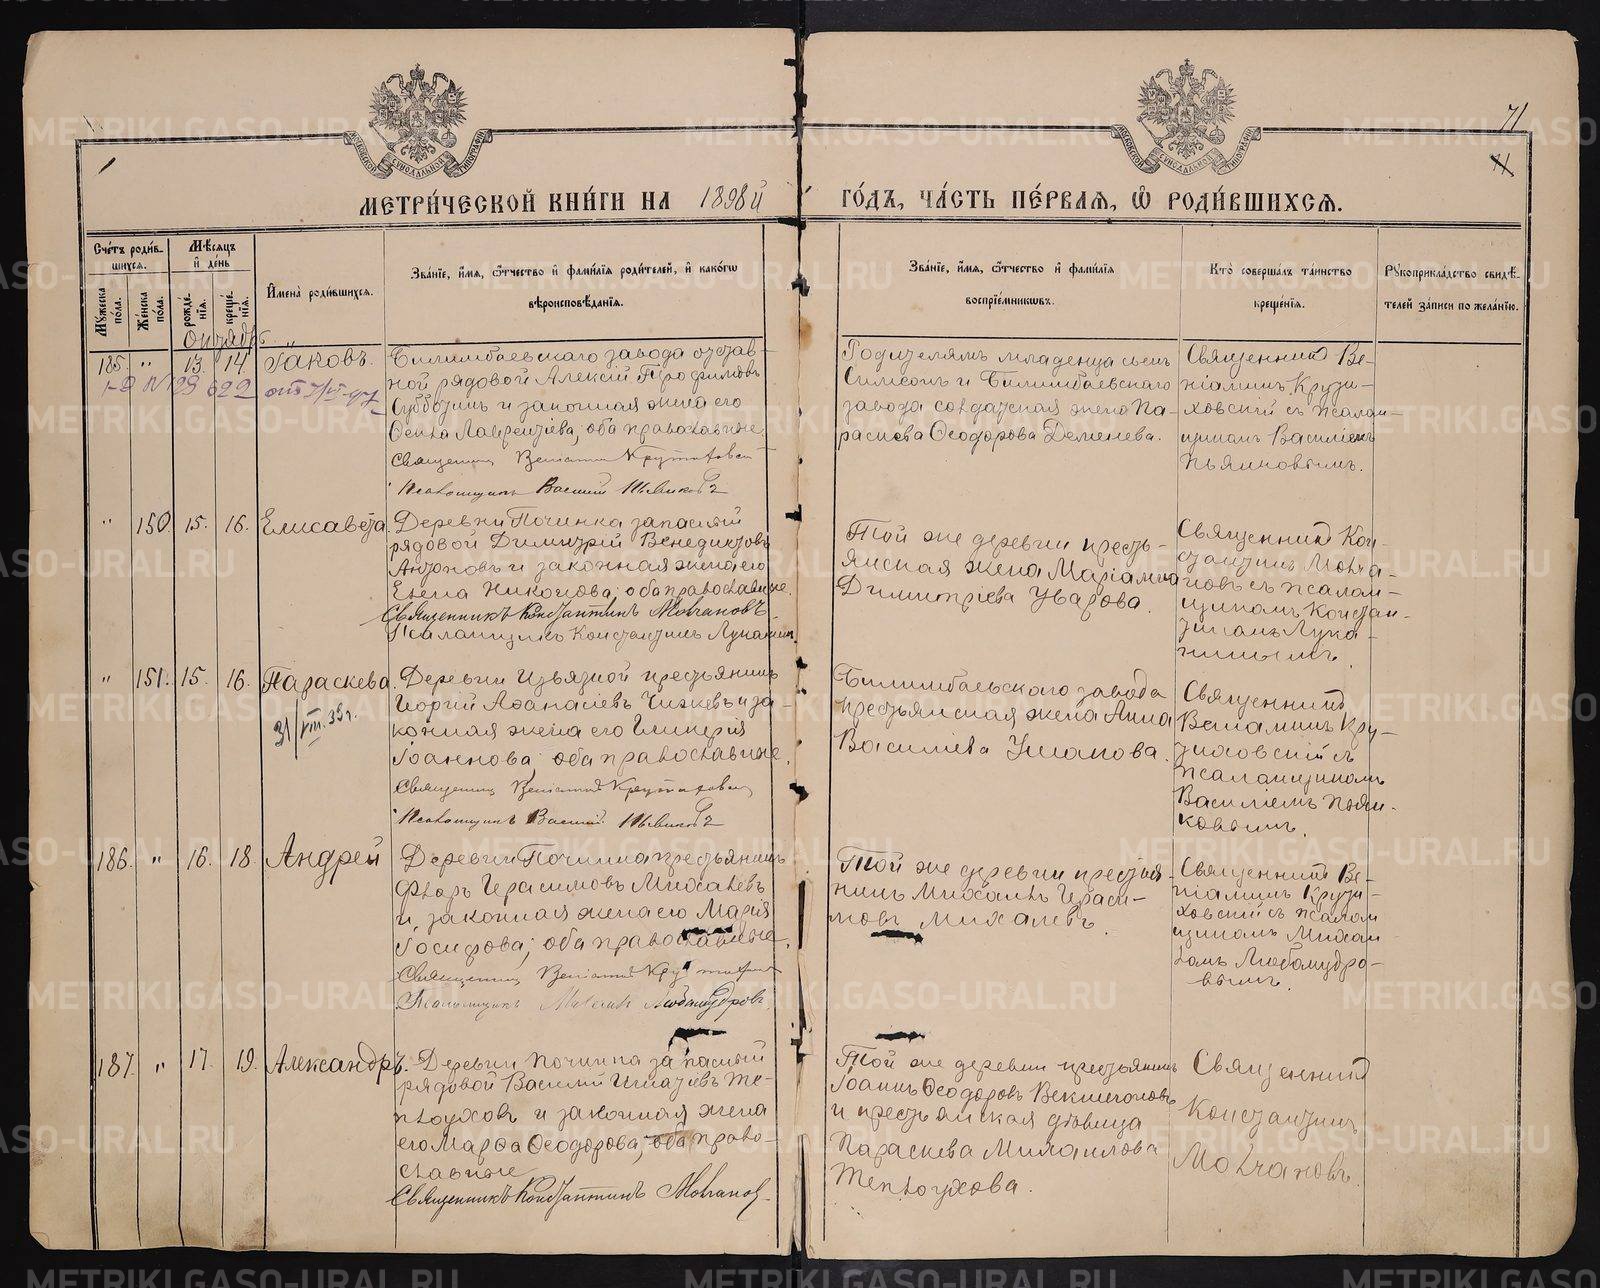 71
МЕТРИ́ЧЕСКОЙ КНИ́ГИ НА 1898й ГО́ДЪ, ЧА́СТЬ ПЕ́РВАЯ, Ѡ РОДИ́ВШИХСЯ.
Сче́тъ роди́вшихся.
Му́жеска по́ла.
Же́нска по́ла.
Мѣ́сяцъ и҆ де́нь
рожде́нїя.
креще́нїя.
И҆мена̀ роди́вшихся.
Зва́нїе, и҆́мя, ѻ҆́тчество и҆ фами́лїя роди́телей, и҆ како́гѡ
вѣроисповѣ́данїя.
Зва́нїе, и҆́мя, ѻ҆́тчество и҆ фами́лїя
воспрїе́мникѡвъ.
Кто̀ соверша́лъ та́инство
креще́нїя.
Рꙋкоприкла́дство свидѣ́телей за́писи по жела́нїю.
Октябрь
185. " 13. 14. Іаковъ.
Билимбаевскаго завода отстав-
ной рядовой Алексій Трофимовъ
Субботинъ и законная жена его
Ѳекла Лаврентіева, оба православные.
Священникъ Веніаминъ Крутиховскій
Псаломщикъ Василій Пьянковъ
Родителямъ младенца сынъ
Симеонъ и Билимбаевскаго
завода солдатская жена Па-
раскева Ѳеодорова Деменева.
Священникъ Ве-
ніаминъ Крути-
ховскій съ псалом-
щикомъ Василіемъ
Пьянковымъ.
" 150. 15. 16. Елисавета.
Деревни Починка запасный
рядовой Димитрій Венедиктовъ
Антоновъ и законная жена его
Елена Николаева, оба православные.
Священникъ Константинъ Молчановъ
Псаломщикъ Константинъ Луканинъ
Той же деревни кресть-
янская жена Маріамна
Димитріева Уварова.
Священникъ Кон-
стантинъ Молча-
новъ съ псалом-
щикомъ Констан-
тиномъ Лука-
нинымъ.
" 151. 15. 16. Параскева
31/VIII.39г.
Деревни Извязной крестьянинъ
Георгій Аѳанасіевъ Чижевъ и за-
конная жена его Гликерія
Іоаннова, оба православные.
Священникъ Веніаминъ Крутиховскій
Псаломщикъ Василій Пьянковъ
Билимбаевскаго завода
крестьянская жена Анна
Василіева Ушакова.
Священникъ
Веніаминъ Кру-
тиховскій съ
псаломщикомъ
Василіемъ Пьян-
ковымъ.
186. " 16. 18. Андрей
Деревни Починка крестьянинъ
Флоръ Герасимовъ Михалевъ
и законная жена его Марія
Іосифова, оба православные.
Священникъ Веніаминъ Крутиховскій
Псаломщикъ Михаилъ Любомудровъ
Той же деревни крестья-
нинъ Михаилъ Гераси-
мовъ Михалевъ.
Священникъ Ве-
ніаминъ Крути-
ховскій съ псалом-
щикомъ Михаи-
ломъ Любомудро-
вымъ.
187. " 17. 19. Александръ.
Деревни Починка запасный
рядовой Василій Игнатіевъ Те-
плоуховъ и законная жена
его Марѳа Ѳеодорова, оба право-
славные
Священникъ Константинъ Молчановъ
Той же деревни крестьянинъ
Іоаннъ Ѳеодоровъ Векшегоновъ
и крестьянская дѣвица
Параскева Михаилова
Теплоухова.
Священникъ
Константинъ
Молчановъ.
METRIKI.GASO-URAL.RU